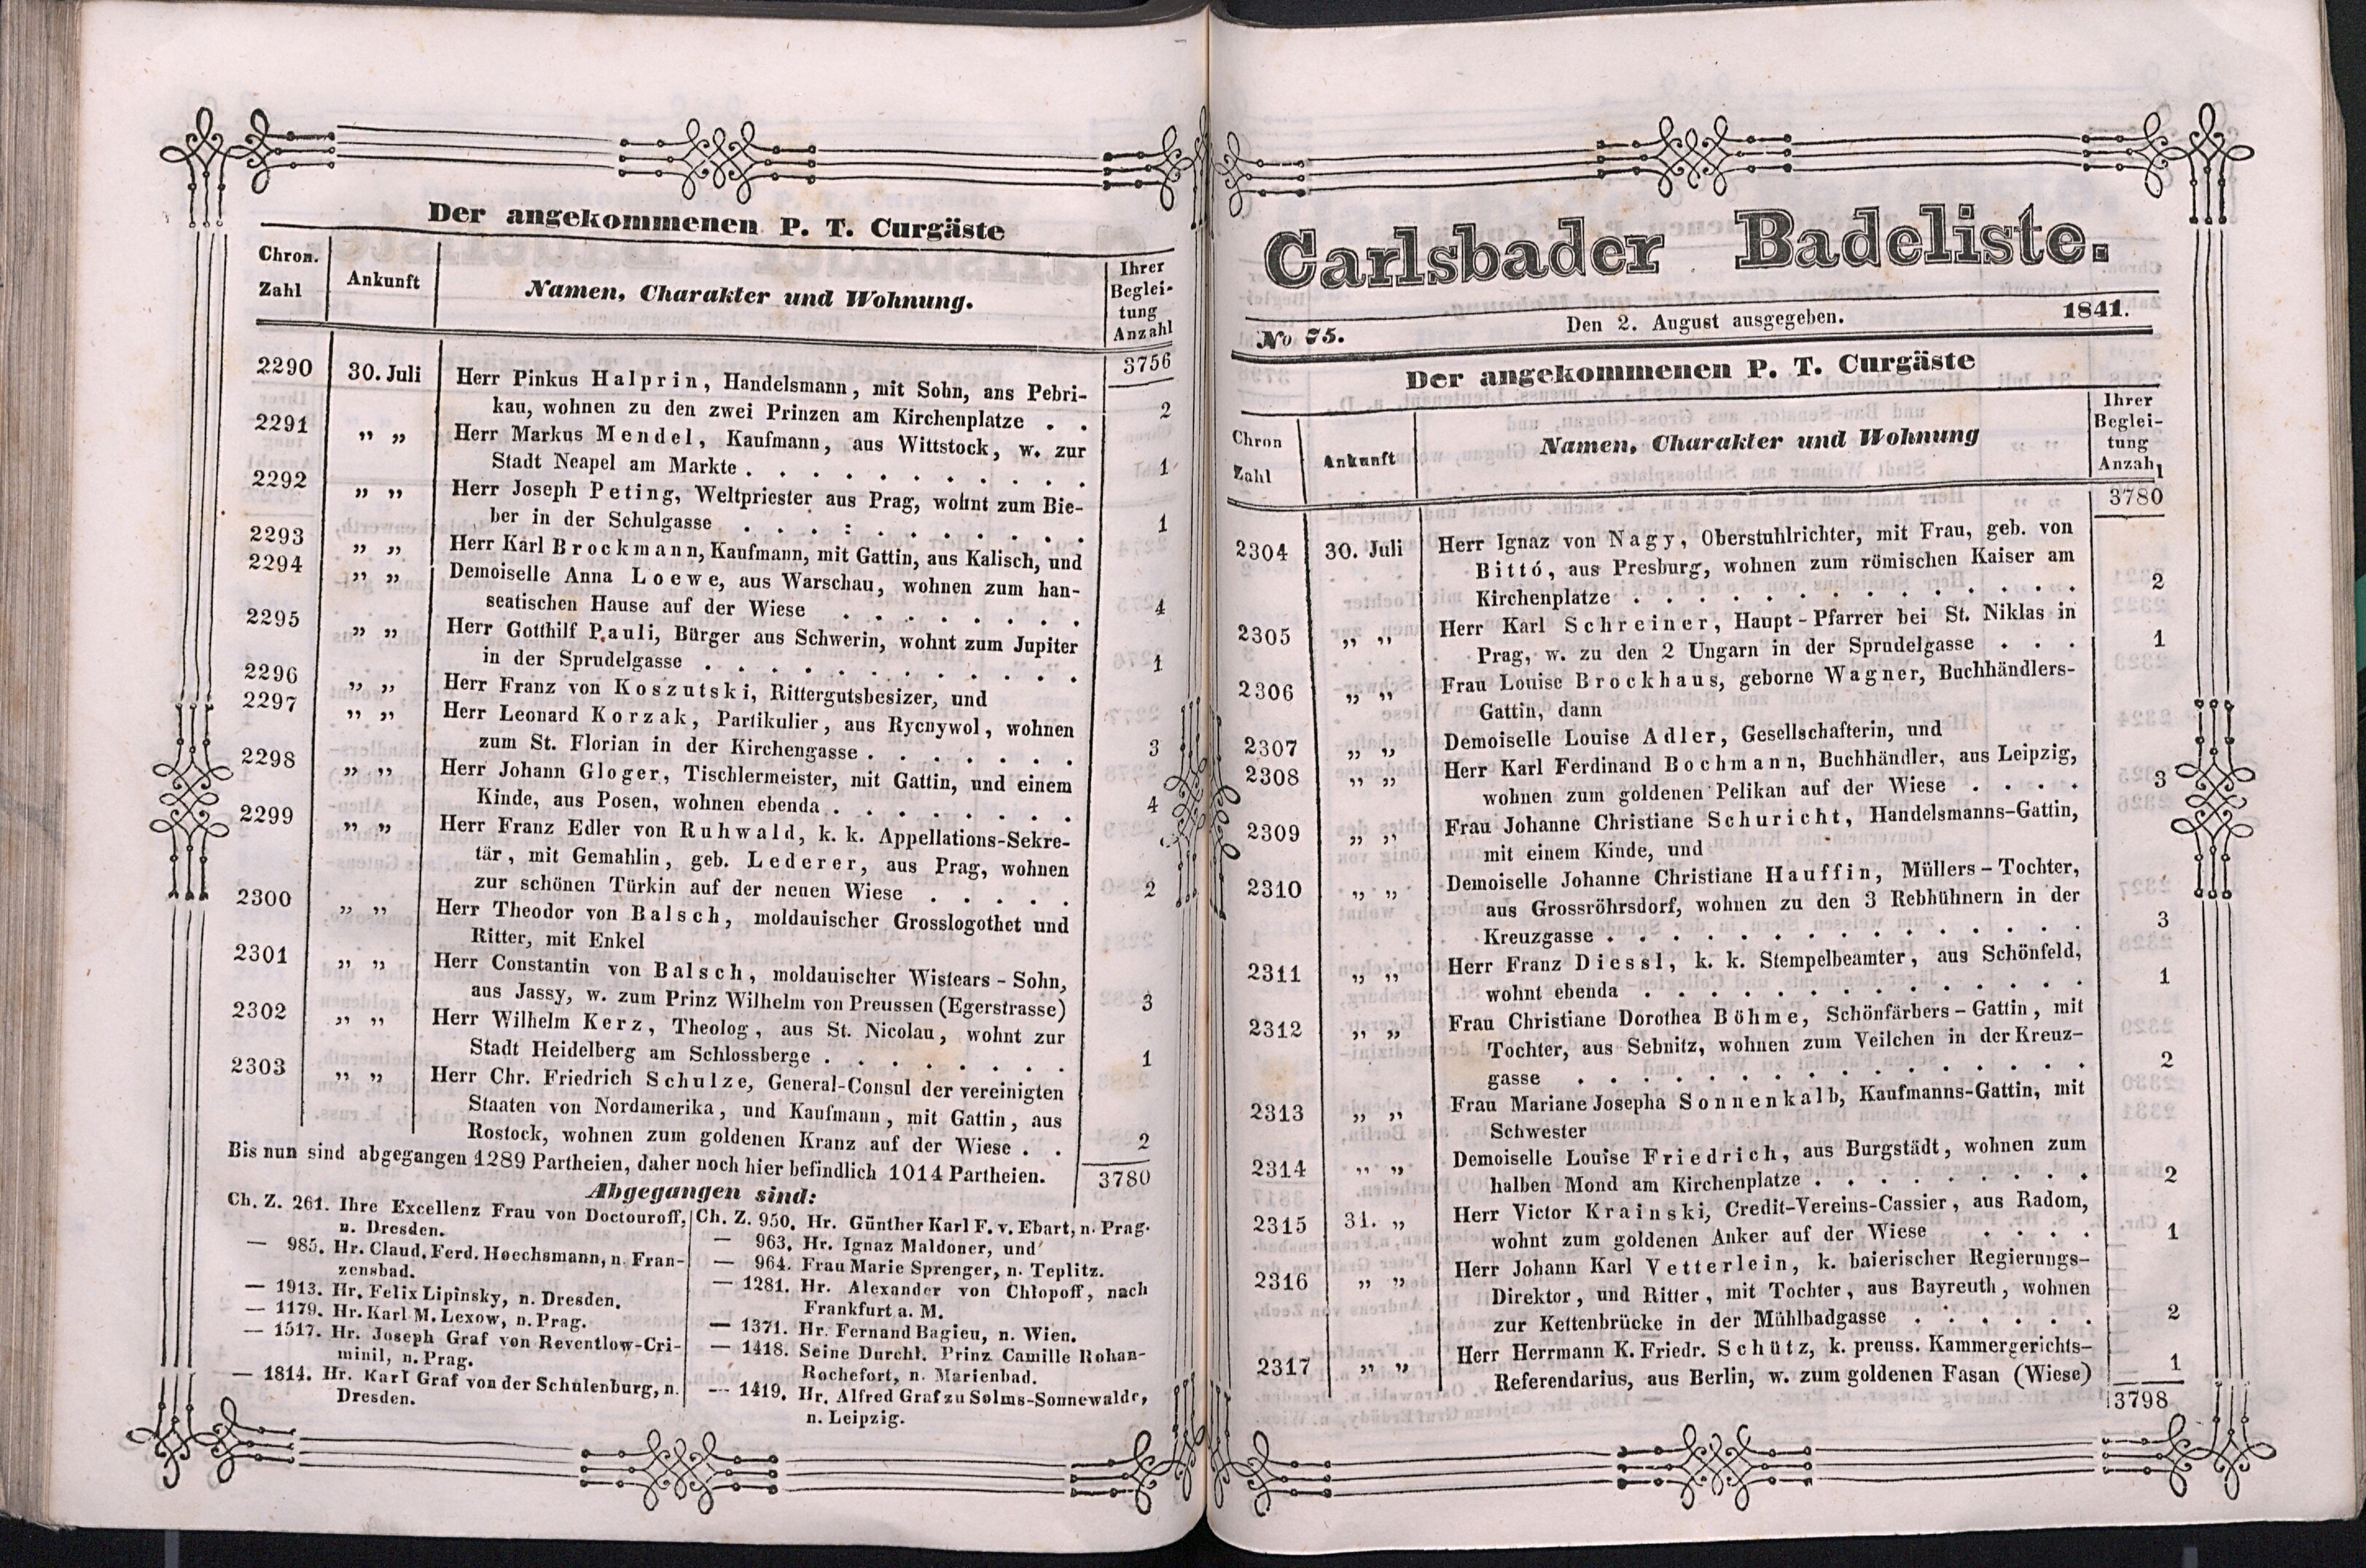 Der angekommenen P. T. Curgäste
Chron. Zahl
Ankunft
Namen, Charakter und Wohnung.
Ihrer Beglei-
tung
Anzahl
3756
2290 30. Juli Herr Pinkus Halprin, Handelsmann, mit Sohn, ans Pebri-
kau, wohnen zu den zwei Prinzen am Kirchenplatze . . 2
2291 „ „ Herr Markus Mendel, Kaufmann, aus Wittstock, w. zur
Stadt Neapel am Markte . . . . . . . . . . 1
2292 „ „ Herr Joseph Peting, Weltpriester aus Prag, wohnt zum Bie-
ber in der Schulgasse . . . : . . . . . . 1
2293 „ „ Herr Karl Brockmann, Kaufmann, mit Gattin, aus Kalisch, und
2294 „ „ Demoiselle Anna Loewe, aus Warschau, wohnen zum han-
seatischen Hause auf der Wiese . . . . . . . 4
2295 „ „ Herr Gotthilf Pauli, Bürger aus Schwerin, wohnt zum Jupiter
in der Sprudelgasse . . . . . . . . . . 1
2296 „ „ Herr Franz von Koszutski, Rittergutsbesizer, und
2297 „ „ Herr Leonard Korzak, Partikulier, aus Rycnywol, wohnen
zum St. Florian in der Kirchengasse . . . . . . . 3
2298 „ „ Herr Johann Gloger, Tischlermeister, mit Gattin, und einem
Kinde, aus Posen, wohnen ebenda . . . . . . . . 4
2299 „ „ Herr Franz Edler von Ruhwald, k. k. Appellations-Sekre-
tär, mit Gemahlin, geb. Lederer, aus Prag, wohnen
zur schönen Türkin auf der neuen Wiese . . . . . 2
2300 „ „ Herr Theodor von Balsch, moldauischer Grosslogothet und
Ritter, mit Enkel
2301 „ „ Herr Constantin von Balsch, moldauischer Wistears-Sohn,
aus Jassy, w. zum Prinz Wilhelm von Preussen (Egerstrasse) 3
2302 „ „ Herr Wilhelm Kerz, Theolog, aus St. Nicolau, wohnt zur
Stadt Heidelberg am Schlossberge . . . . . . . 1
2303 „ „ Herr Chr. Friedrich Schulze, General-Consul der vereinigten
Staaten von Nordamerika, und Kaufmann, mit Gattin, aus
Rostock, wohnen zum goldenen Kranz auf der Wiese . . 2
Bis nun sind abgegangen 1289 Partheien, daher noch hier befindlich 1014 Partheien. 3780
Abgegangen sind:
Ch. Z. 261. Ihre Excellenz Frau von Doctouroff,
n. Dresden.
— 985. Hr. Claud. Ferd. Hoechsmann, n. Fran-
zensbad.
— 1913. Hr. Felix Lipinsky, n. Dresden.
— 1179. Hr. Karl M. Lexow, n. Prag.
— 1517. Hr. Joseph Graf von Reventlow-Cri-
minil, n. Prag.
— 1814. Hr. Karl Graf von der Schulenburg, n.
Dresden.
Ch. Z. 950. Hr. Günther Karl F. v. Ebart, n. Prag.
— 963. Hr. Ignaz Maldoner, und
— 964. Frau Marie Sprenger, n. Teplitz.
— 1281. Hr. Alexander von Chlopoff, nach
Frankfurt a. M.
— 1371. Hr. Fernand Bagieu, n. Wien.
— 1418. Seine Durchl. Prinz Camille Rohan-
Rochefort, n. Marienbad.
— 1419. Hr. Alfred Graf zu Solms-Sonnewalde,
n. Leipzig.
Carlsbader Badeliste.
No 75. Den 2. August ausgegeben. 1841.
Der angekommenen P. T. Curgäste
Chron Zahl
Ankunft
Namen, Charakter und Wohnung
Ihrer
Beglei-
tung
Anzahl
3780
2304 30. Juli Herr Ignaz von Nagy, Oberstuhlrichter, mit Frau, geb. von
Bittó, aus Presburg, wohnen zum römischen Kaiser am
Kirchenplatze . . . . . . . . . . . . 2
2305 „ „ Herr Karl Schreiner, Haupt-Pfarrer bei St. Niklas in
Prag, w. zu den 2 Ungarn in der Sprudelgasse . . . 1
2306 „ „ Frau Louise Brockhaus, geborne Wagner, Buchhändlers-
Gattin, dann
2307 „ „ Demoiselle Louise Adler, Gesellschafterin, und
2308 „ „ Herr Karl Ferdinand Bochmann, Buchhändler, aus Leipzig,
wohnen zum goldenen Pelikan auf der Wiese . . . . 3
2309 „ „ Frau Johanne Christiane Schuricht, Handelsmanns-Gattin,
mit einem Kinde, und
2310 „ „ Demoiselle Johanne Christiane Hauffin, Müllers-Tochter,
aus Grossröhrsdorf, wohnen zu den 3 Rebhühnern in der
Kreuzgasse . . . . . . . . . . . . . 3
2311 „ „ Herr Franz Diessl, k. k. Stempelbeamter, aus Schönfeld,
wohnt ebenda . . . . . . . . . . . . 1
2312 „ „ Frau Christiane Dorothea Böhme, Schönfärbers-Gattin, mit
Tochter, aus Sebnitz, wohnen zum Veilchen in der Kreuz-
gasse . . . . . . . . . . . . . . 2
2313 „ „ Frau Mariane Josepha Sonnenkalb, Kaufmanns-Gattin, mit
Schwester
2314 „ „ Demoiselle Louise Friedrich, aus Burgstädt, wohnen zum
halben Mond am Kirchenplatze . . . . . . . . 2
2315 31. „ Herr Victor Krainski, Credit-Vereins-Cassier, aus Radom,
wohnt zum goldenen Anker auf der Wiese . . . . 1
2316 „ „ Herr Johann Karl Vetterlein, k. baierischer Regierungs-
Direktor, und Ritter, mit Tochter, aus Bayreuth, wohnen
zur Kettenbrücke in der Mühlbadgasse . . . . . . 2
2317 „ „ Herr Herrmann K. Friedr. Schütz, k. preuss. Kammergerichts-
Referendarius, aus Berlin, w. zum goldenen Fasan (Wiese) 1
3798